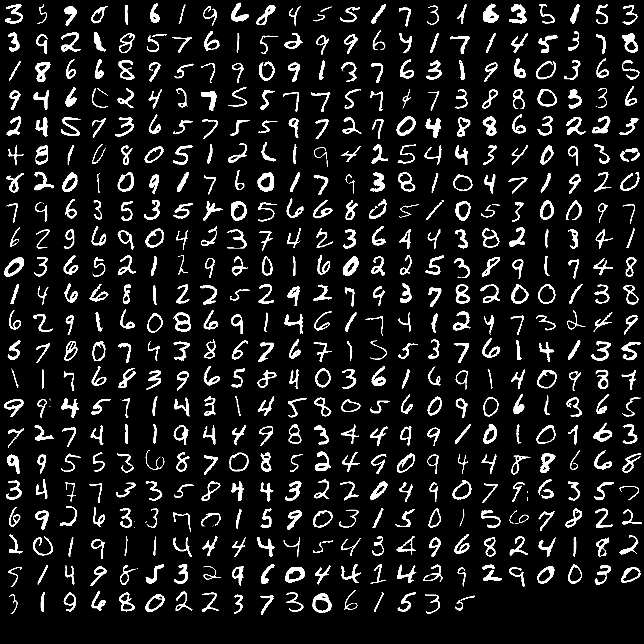 3 5 0 1 6 1 9 6 8 4 5 5 1 7 3 1 6 3 5 1 5 3
3 9 2 1 8 5 7 6 1 5 2 9 9 6 4 1 7 1 4 5 3 7 8
1 8 6 6 8 9 5 7 9 0 9 1 3 7 6 3 1 9 6 0 3 6 5
9 4 6 0 2 4 2 7 5 5 7 7 5 7 1 7 3 8 8 0 3 3 6
2 4 5 7 3 6 5 7 5 5 9 7 2 7 0 4 8 8 6 3 2 2 3
4 8 1 0 8 0 5 1 2 6 1 9 4 2 5 4 4 3 4 0 9 3 0
8 2 0 1 0 9 1 7 6 0 1 7 9 3 8 1 0 4 7 1 9 2 0
7 9 6 3 5 3 5 4 0 5 6 6 8 0 5 1 0 5 3 0 0 9 7
6 2 9 6 9 0 4 2 3 7 4 2 3 6 4 4 3 8 2 1 3 4 1
0 3 6 5 2 1 2 9 2 0 1 6 0 2 2 5 3 8 9 1 7 4 8
1 4 6 6 8 1 2 2 5 2 9 2 7 9 3 7 8 2 0 0 1 3 8
6 2 9 1 6 0 8 6 9 1 4 6 1 7 4 1 2 4 7 3 2 4 9
5 7 8 0 7 9 3 8 6 7 6 7 1 5 5 3 7 6 1 4 1 3 5
1 1 7 6 8 3 9 6 5 8 4 0 3 6 1 6 9 1 4 0 9 8 7
9 9 4 5 7 1 4 3 1 4 5 8 0 5 6 0 9 0 6 1 3 6 5
7 2 7 4 1 1 9 4 4 9 8 3 4 4 9 9 1 0 1 0 1 6 3
9 9 5 5 3 6 8 7 0 8 5 2 4 9 0 9 4 4 8 8 6 6 8
3 4 7 7 3 3 5 8 4 4 3 2 2 0 4 9 0 7 9 6 3 5 5
6 9 2 6 3 3 7 0 1 5 9 0 3 1 5 0 1 5 6 7 8 2 2
2 0 1 9 1 1 4 4 4 4 4 5 4 3 4 9 6 8 2 4 1 8 2
5 1 4 9 8 5 3 2 9 6 0 4 4 1 4 2 9 2 9 0 0 3 0
3 1 9 6 8 0 2 2 3 7 3 0 6 1 5 3 5